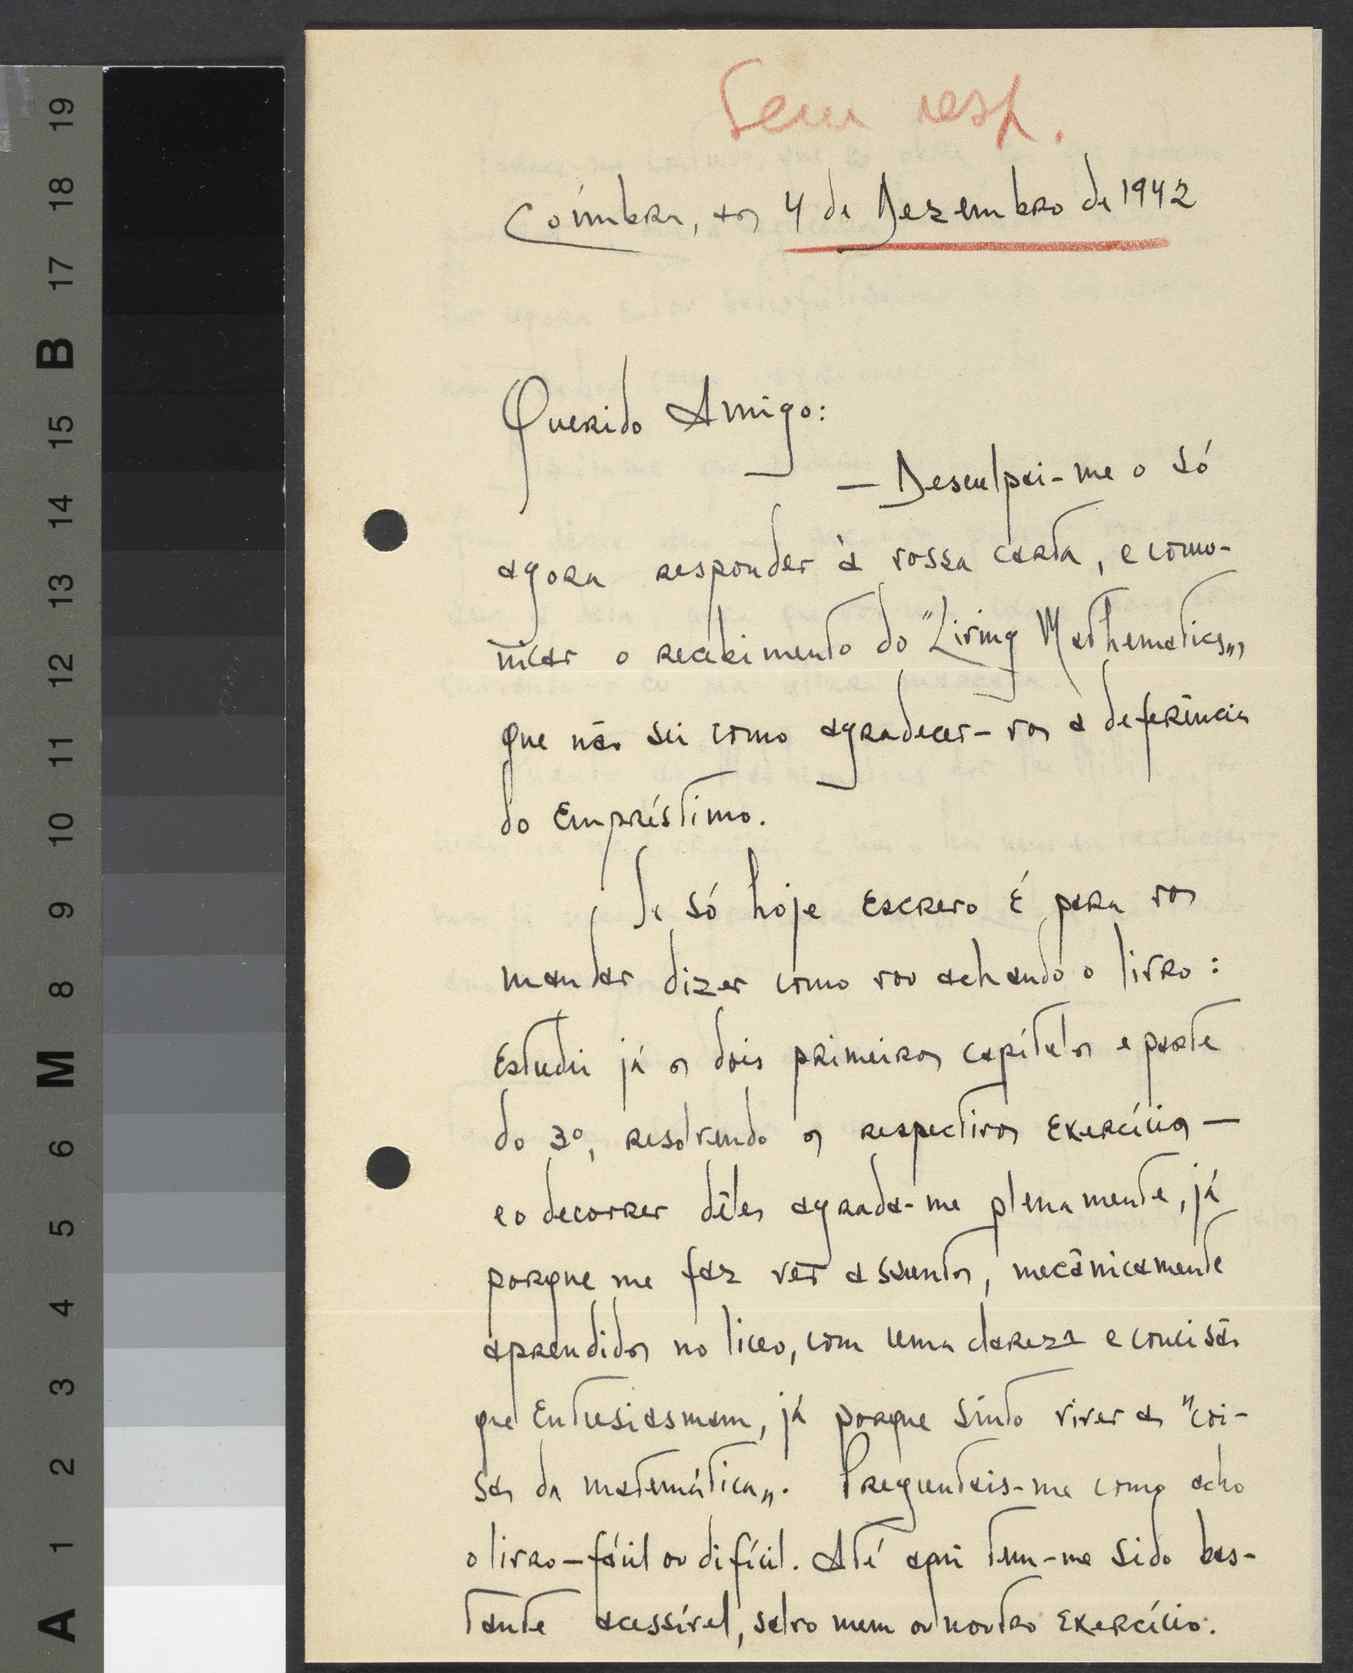 Sem resp.
Coímbra, aos 4 de Dezembro de 1942
Querido Amigo:
— Desculpai-me o só
agora responder à vossa carta, e comu-
nicar o recebimento do "Living Mathematics„,
que não sei como agradecer-vos a deferência
do empréstimo.
Se só hoje escrevo é para vos
mandar dizer como vou achando o livro:
Estudei já os dois primeiros capítulos e parte
do 3º, resolvendo os respectivos exercícios —
e o decorrer dêles agrada-me plenamente, já
porque me faz vêr assuntos, mecânicamente
aprendidos no liceo, com uma clareza e concisão
que entusiasmam, já porque sinto viver as "coi-
sas da matemática„. Preguntais-me como acho
o livro — fácil ou difícil. Até aqui tem-me sido bas-
tante acessível, salvo num ou noutro exercício.
A 1 2 3 4 5 6 M 8 9 10 11 12 13 14 15 B 17 18 19